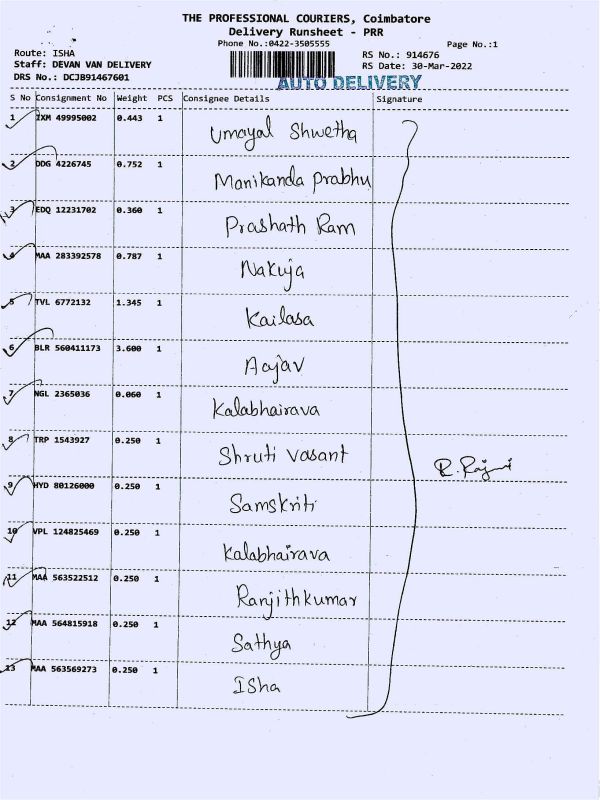 THE PROFESSIONAL COURIERS, Coimbatore
Delivery Runsheet - PRR
Phone No.:0422-3505555 Page No.:1
Route: ISHA RS No.: 914676
Staff: DEVAN VAN DELIVERY RS Date: 30-Mar-2022
DRS No.: DCJB91467601
AUTO DELIVERY
S No Consignment No Weight PCS Consignee Details Signature
1 IXM 49995002 0.443 1 Umayal Shwetha
2 DDG 4226745 0.752 1 Manikanda Prabhu
3 EDQ 12231702 0.360 1 Prashath Ram
4 MAA 283392578 0.787 1 Nakuja
5 TVL 6772132 1.345 1 Kailasa
6 BLR 560411173 3.600 1 Aajav
7 NGL 2365036 0.060 1 Kalabhairava
8 TRP 1543927 0.250 1 Shruti Vasant
R.
9 HYD 80126000 0.250 1 Samskriti
10 VPL 124825469 0.250 1 Kalabhairava
11 MAA 563522512 0.250 1 Ranjithkumar
12 MAA 564815918 0.250 1 Sathya
13 MAA 563569273 0.250 1 ISha